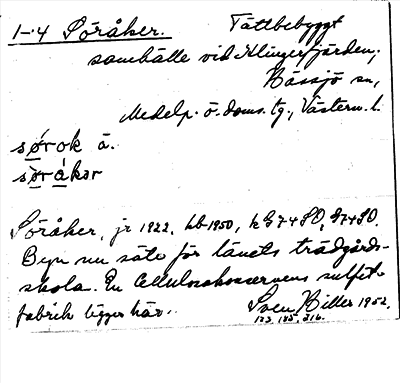 1-4 Söråker. Tättbebyggt
samhälle vid Klingerfjärden,
Hässjö sn,
Medelp. ö. doms. tg., Västern. l.
sørok å.
sòråkər
Söråker, jr 1922, hb 1950, k G74SO, G74SO.
Byn nu säte för länets trädgårds-
skola. En Cellulosakoncernens sulfit-
fabrik ligger här.
Sven Hiller 1952.
123, 185, 216.